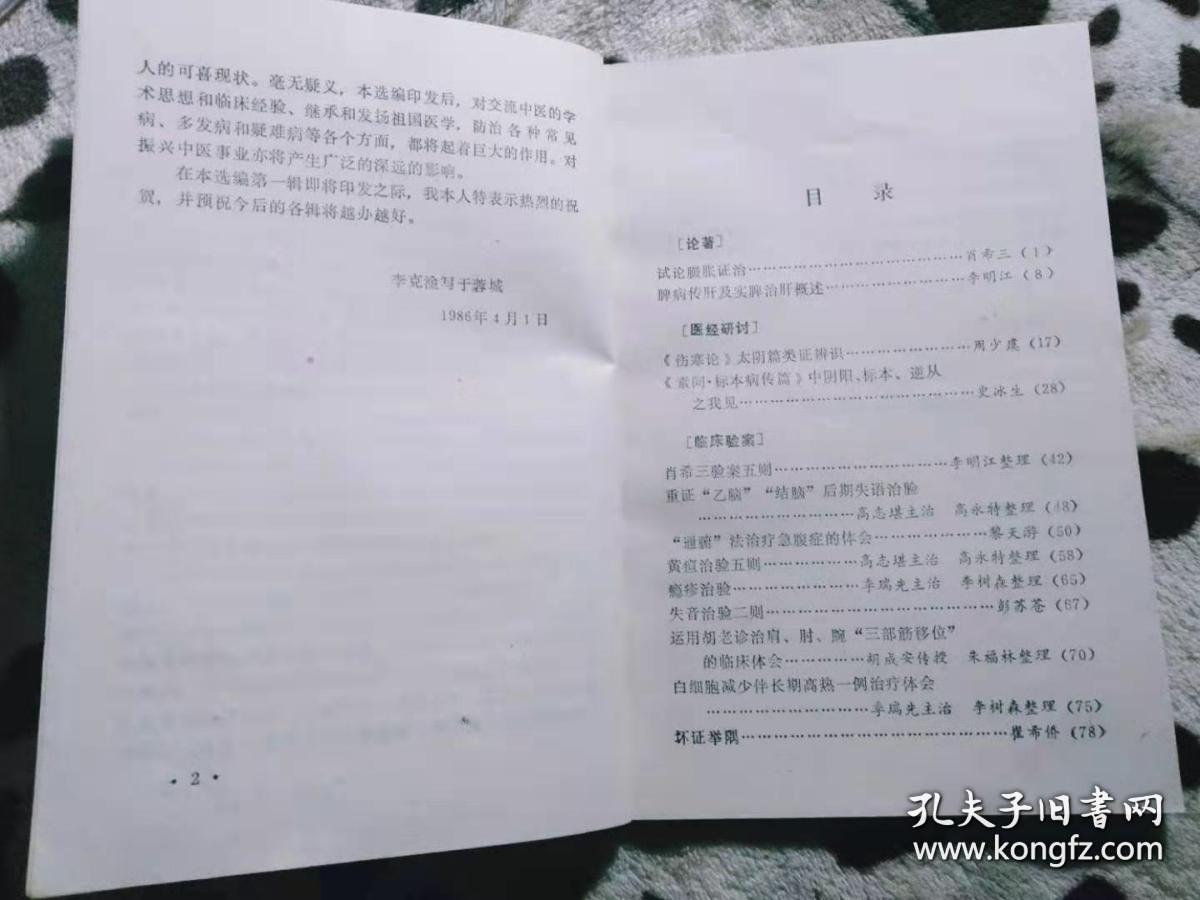 人的可喜现状。毫无疑义，本选编印发后，对交流中医的学
术思想和临床经验、继承和发扬祖国医学，防治各种常见
病、多发病和疑难病等各个方面，都将起着巨大的作用。对
振兴中医事业亦将产生广泛的深远的影响。
在本选编第一辑即将印发之际，我本人特表示热烈的祝
贺，并预祝今后的各辑将越办越好。
李克淦写于蓉城
1986年4月1日
·2·
目 录
［论著］
试论臌胀证治……………………………肖希三（1）
脾病传肝及实脾治肝概述………………李明江（8）
［医经研讨］
《伤寒论》太阴篇类证辨识……………周少虞（17）
《素问·标本病传篇》中阴阳、标本、逆从
之我见……………………………………史冰生（28）
［临床验案］
肖希三验案五则……………………李明江整理（42）
重证“乙脑”“结脑”后期失语治验
…………………………高志堪主治 高永特整理（48）
“通腑”法治疗急腹症的体会…………黎天游（50）
黄疸治验五则…………高志堪主治 高永特整理（58）
瘾疹治验………………李瑞先主治 李树森整理（65）
失音治验二则……………………………彭苏苍（67）
运用胡老诊治肩、肘、腕“三部筋移位”
的临床体会……………胡成安传授 朱福林整理（70）
白细胞减少伴长期高热一例治疗体会
…………………………李瑞先主治 李树森整理（75）
坏证举隅…………………………………崔希侨（78）
孔夫子旧书网
www.kongfz.com